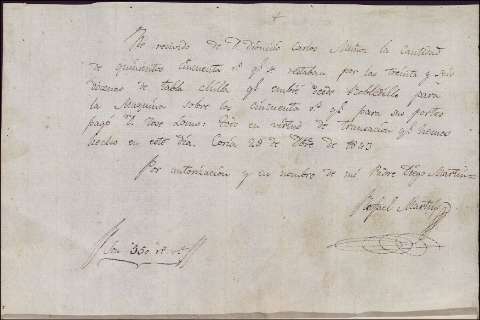 He recivido de D. Dionicio Carlos Muñoz la Cantidad
de quinientos cincuenta rs. qe. restaban por las treinta y seis
docenas de tabla chilla qe. embié desde Robledillo para
la Maquina sobre los cincuenta rs. qe. para sus portes
pagó D. Jose todo en virtud de transacion qe. hemos
hecho en este dia. Coria 28 de de 1843
Por autorizacion y en nombre de mi Padre Diego Martin=
Rafael Martin
Son 550 rs. vn.